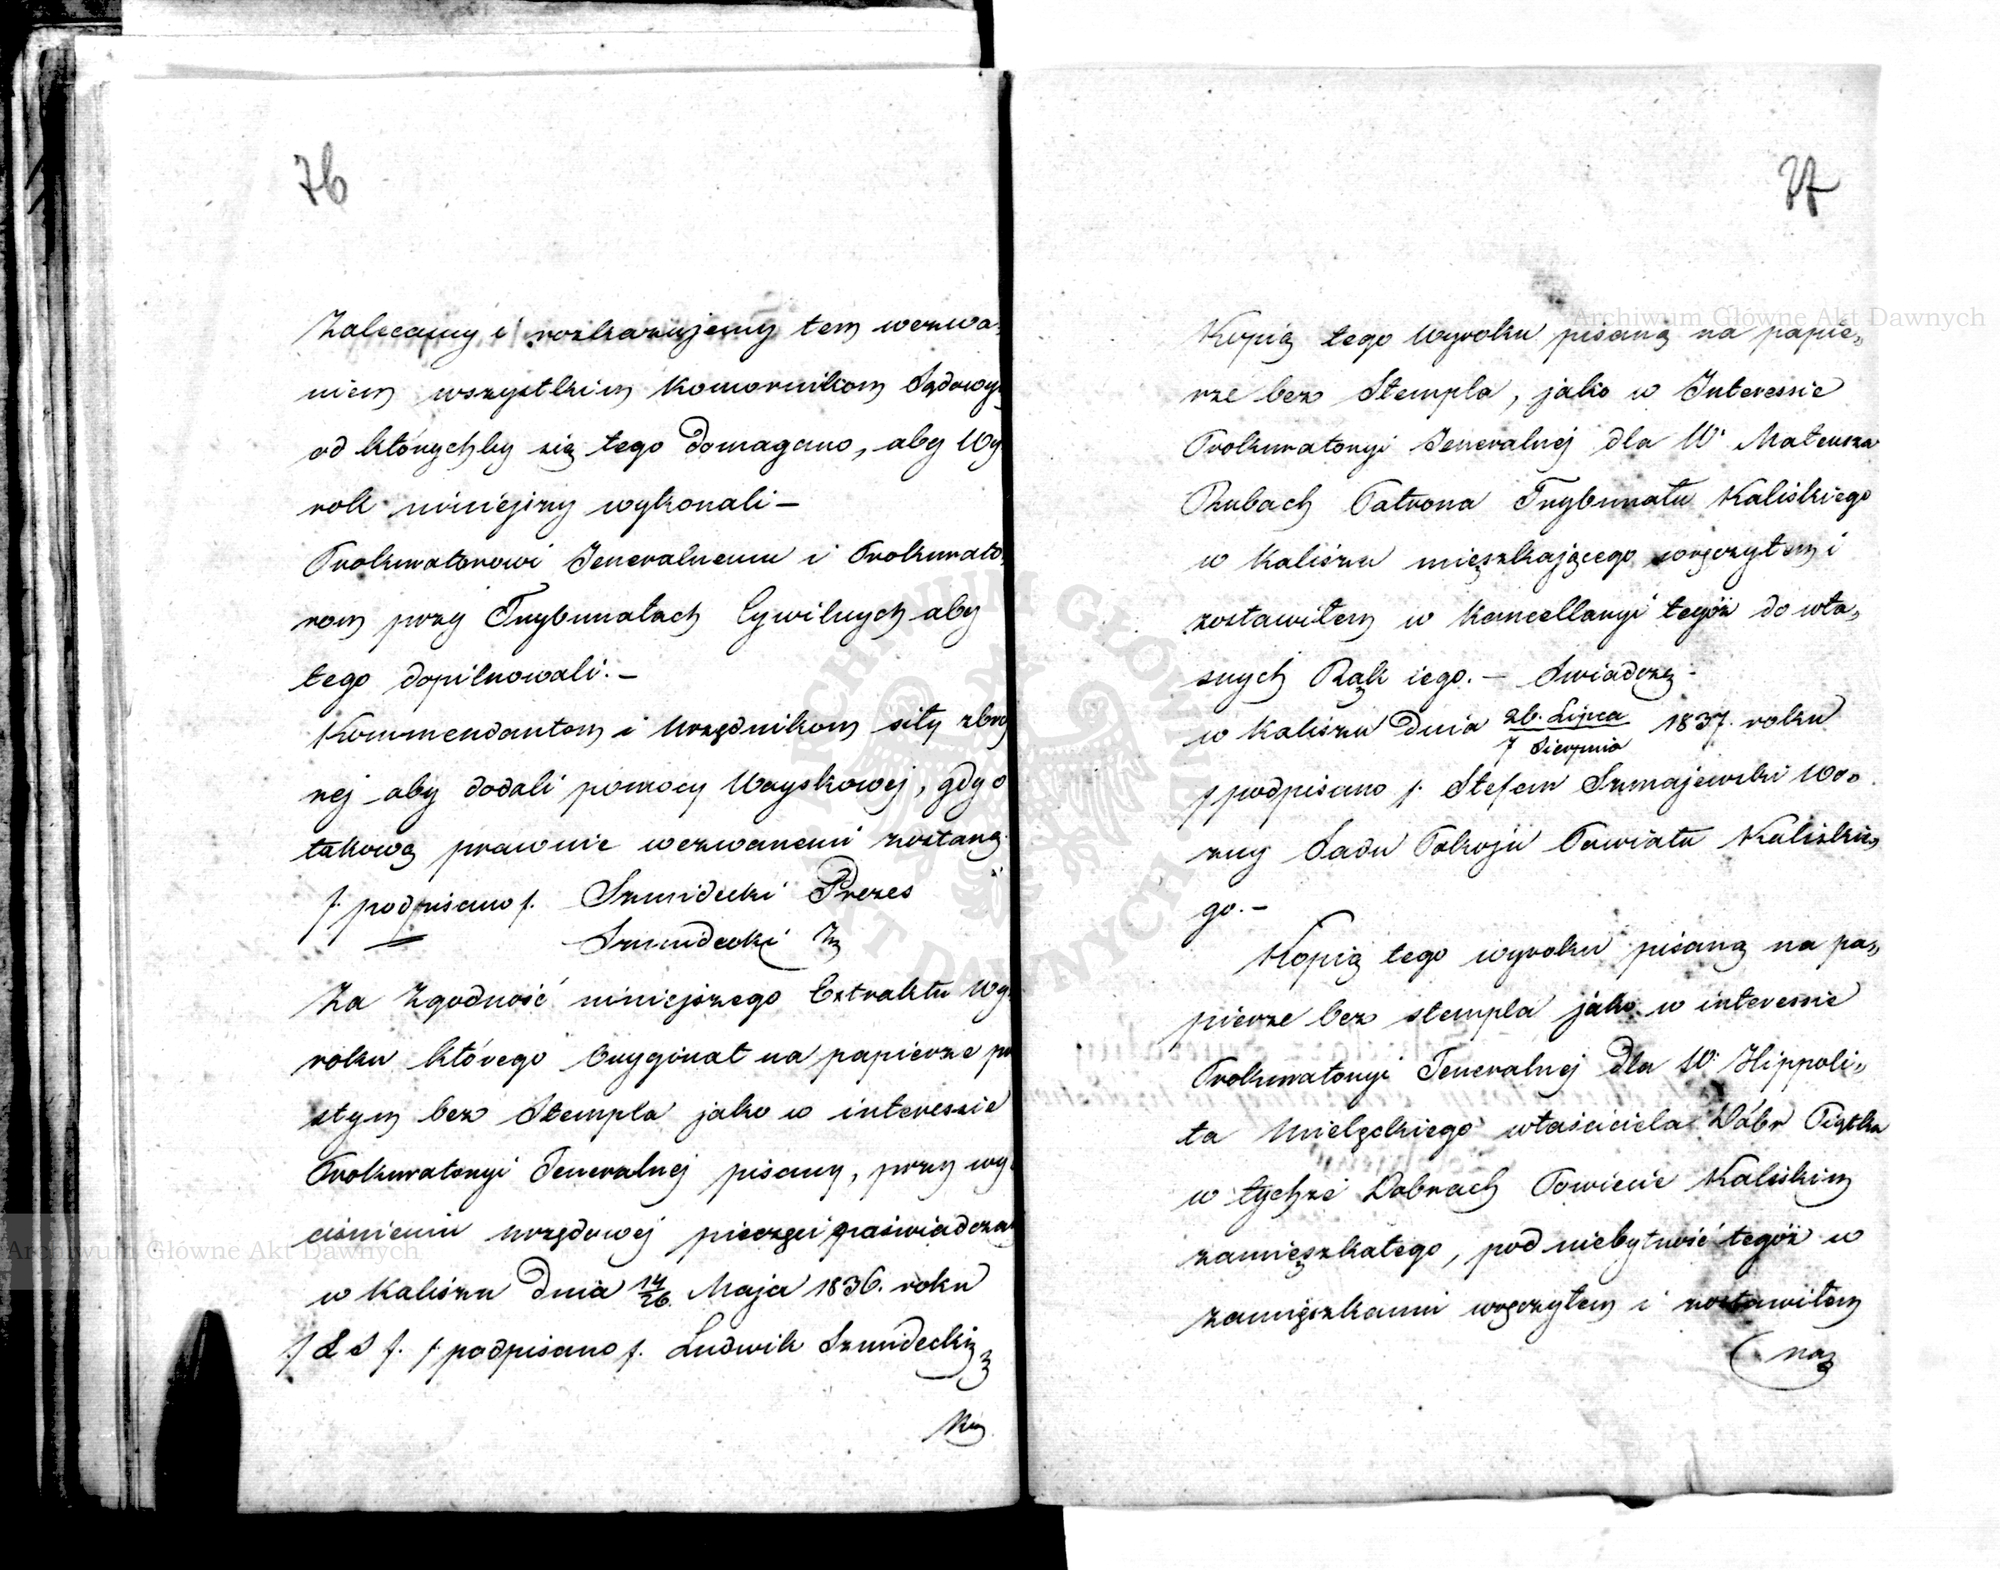 76
Zalecamy i rozkazujemy tem wezwa-
niem wszystkim Komornikom Sądowy
od którychby się tego domagano, aby Wy
rok niniejszy wykonali –
Prokuratorowi Jeneralnemu i Prokurato
rom przy Trybunałach Cywilnych aby
tego dopilnowali. –
Kommendantom i Urzędnikom siły zbro
nej aby dodali pomocy Woyskowej, gdy o
takową prawnie wezwanemi zostaną.
/: podpisano /. Szmidecki Prezes
Szmidecki
Za Zgodność niniejszego Extraktu Wy
roku którego Oryginał na papierze pro
stym bez Stempla jako w interessie
Prokuratoryi Jeneralnej pisany, przy wy
ciśnieniu urzędowej pieczęci zaświadcza
w Kaliszu Dnia 14/26 Maja 1836. roku
/ L S /. /: podpisano /. Ludwik Szmidecki
77
Kopią tego Wyroku pisaną na papie„
rze bez Stempla, jako w Interessie
Prokuratoryi Jeneralnej dla W. Mateusza
Rubach Patrona Trybunału Kaliskiego
w Kaliszu mięszkaiącego wręczyłem i
zostawiłem w Kancellaryi tegóż do wła„
snych Rąk iego. – Swiadczę –
w Kaliszu Dnia 26. Lipca / 7 Sierpnia 1837. roku
/ podpisano /. Stefan Szmajewski Woź
ny Sadu Pokoju Powiatu Kaliskie„
go. –
Kopią tego wyroku pisaną na pa„
pierze bez stempla jako w interessie
Prokuratoryi Jeneralnej dla W. Hippoli„
ta Mielęckiego właściciela Dóbr Piątka
w tychże Dobrach Powiecie Kaliskim
zamięszkałego, pod niebytność tegóż w
zamięszkaniu wręczyłem i zostawiłem
na
Archiwum Główne Akt Dawnych
Archiwum Główne Akt Dawnych
ARCHIWUM GŁÓWNE AKT DAWNYCH